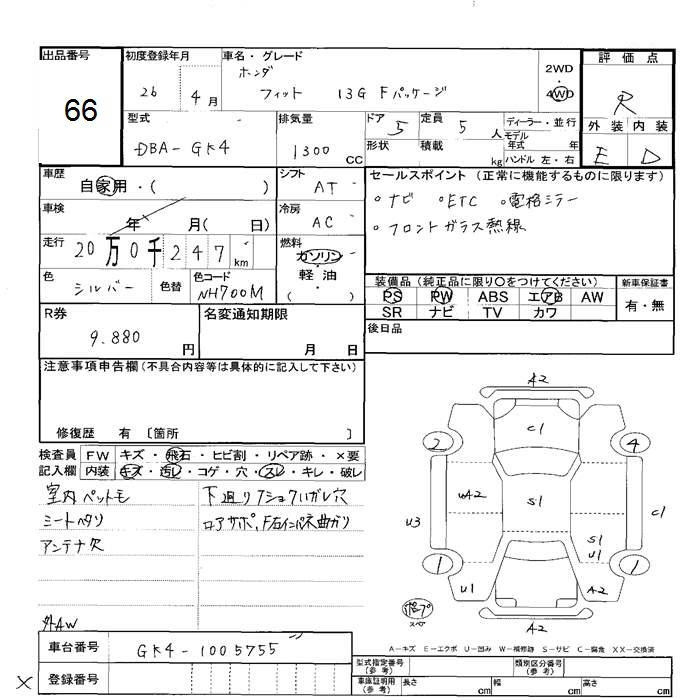 出品番号
66
初度登録年月
26 4月
車名・グレード
ホンダ
フィット 13G Fパッケージ
2WD
4WD
評価点
R
外装 内装
E D
型式
DBA-GK4
排気量
1300 CC
ドア 5
定員 5 人
形状
積載 kg
ディーラー・並行
モデル
年式 年
ハンドル 左・右
車歴
自家用・( )
シフト AT
セールスポイント (正常に機能するものに限ります)
・ナビ ・ETC ・電格ミラー
・フロントガラス熱線
車検
年 月( 日)
冷房 AC
走行 20万0千247km
燃料
ガソリン
軽油
( )
色 シルバー
色替
色コード NH700M
装備品 (純正品に限り〇をつけてください)
PS PW ABS エアB AW
SR ナビ TV カワ
新車保証書
有・無
R券
9.880 円
名変通知期限
月 日
後日品
注意事項申告欄 (不具合内容等は具体的に記入して下さい)
修復歴 有 〔箇所 〕
検査員 FW キズ・飛石・ヒビ割・リペア跡・×要
記入欄 内装 キズ・汚レ・コゲ・穴・スレ・キレ・破レ
室内ペットモ
シートヘタリ
アンテナ欠
外AW
下廻り
ロアサポ,F右インパネ曲ガリ
A2
C1
2
4
WA2
S1
U3
C1
S1
U1
1
1
U1
A2
A2
スペア
A-キズ E-エクボ U-凹み W-補修跡 S-サビ C-腐食 XX-交換済
車台番号 GK4-1005755
× 登録番号
型式指定番号
(参考)
類別区分番号
(参考)
車庫証明用
(参考)
長さ cm 幅 cm 高さ cm